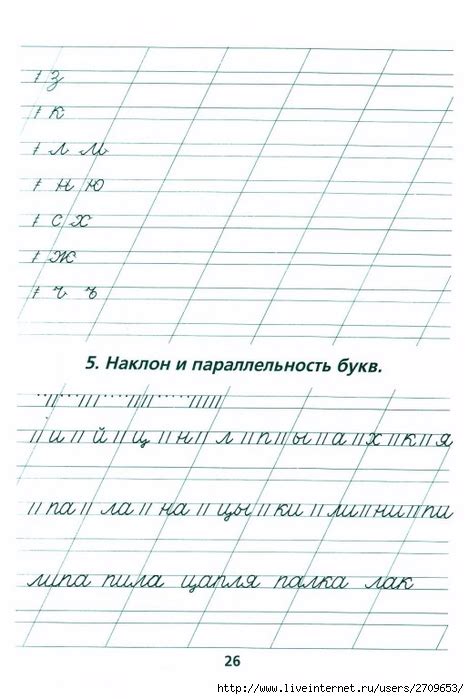 з
к
л м
н ю
с х
ж
ч ъ
5. Наклон и параллельность букв.
и й ц н л п ы а х к я
па ла на цы ки ли ни пи
липа пила цапля палка лак
26
http://www.liveinternet.ru/users/2709653/